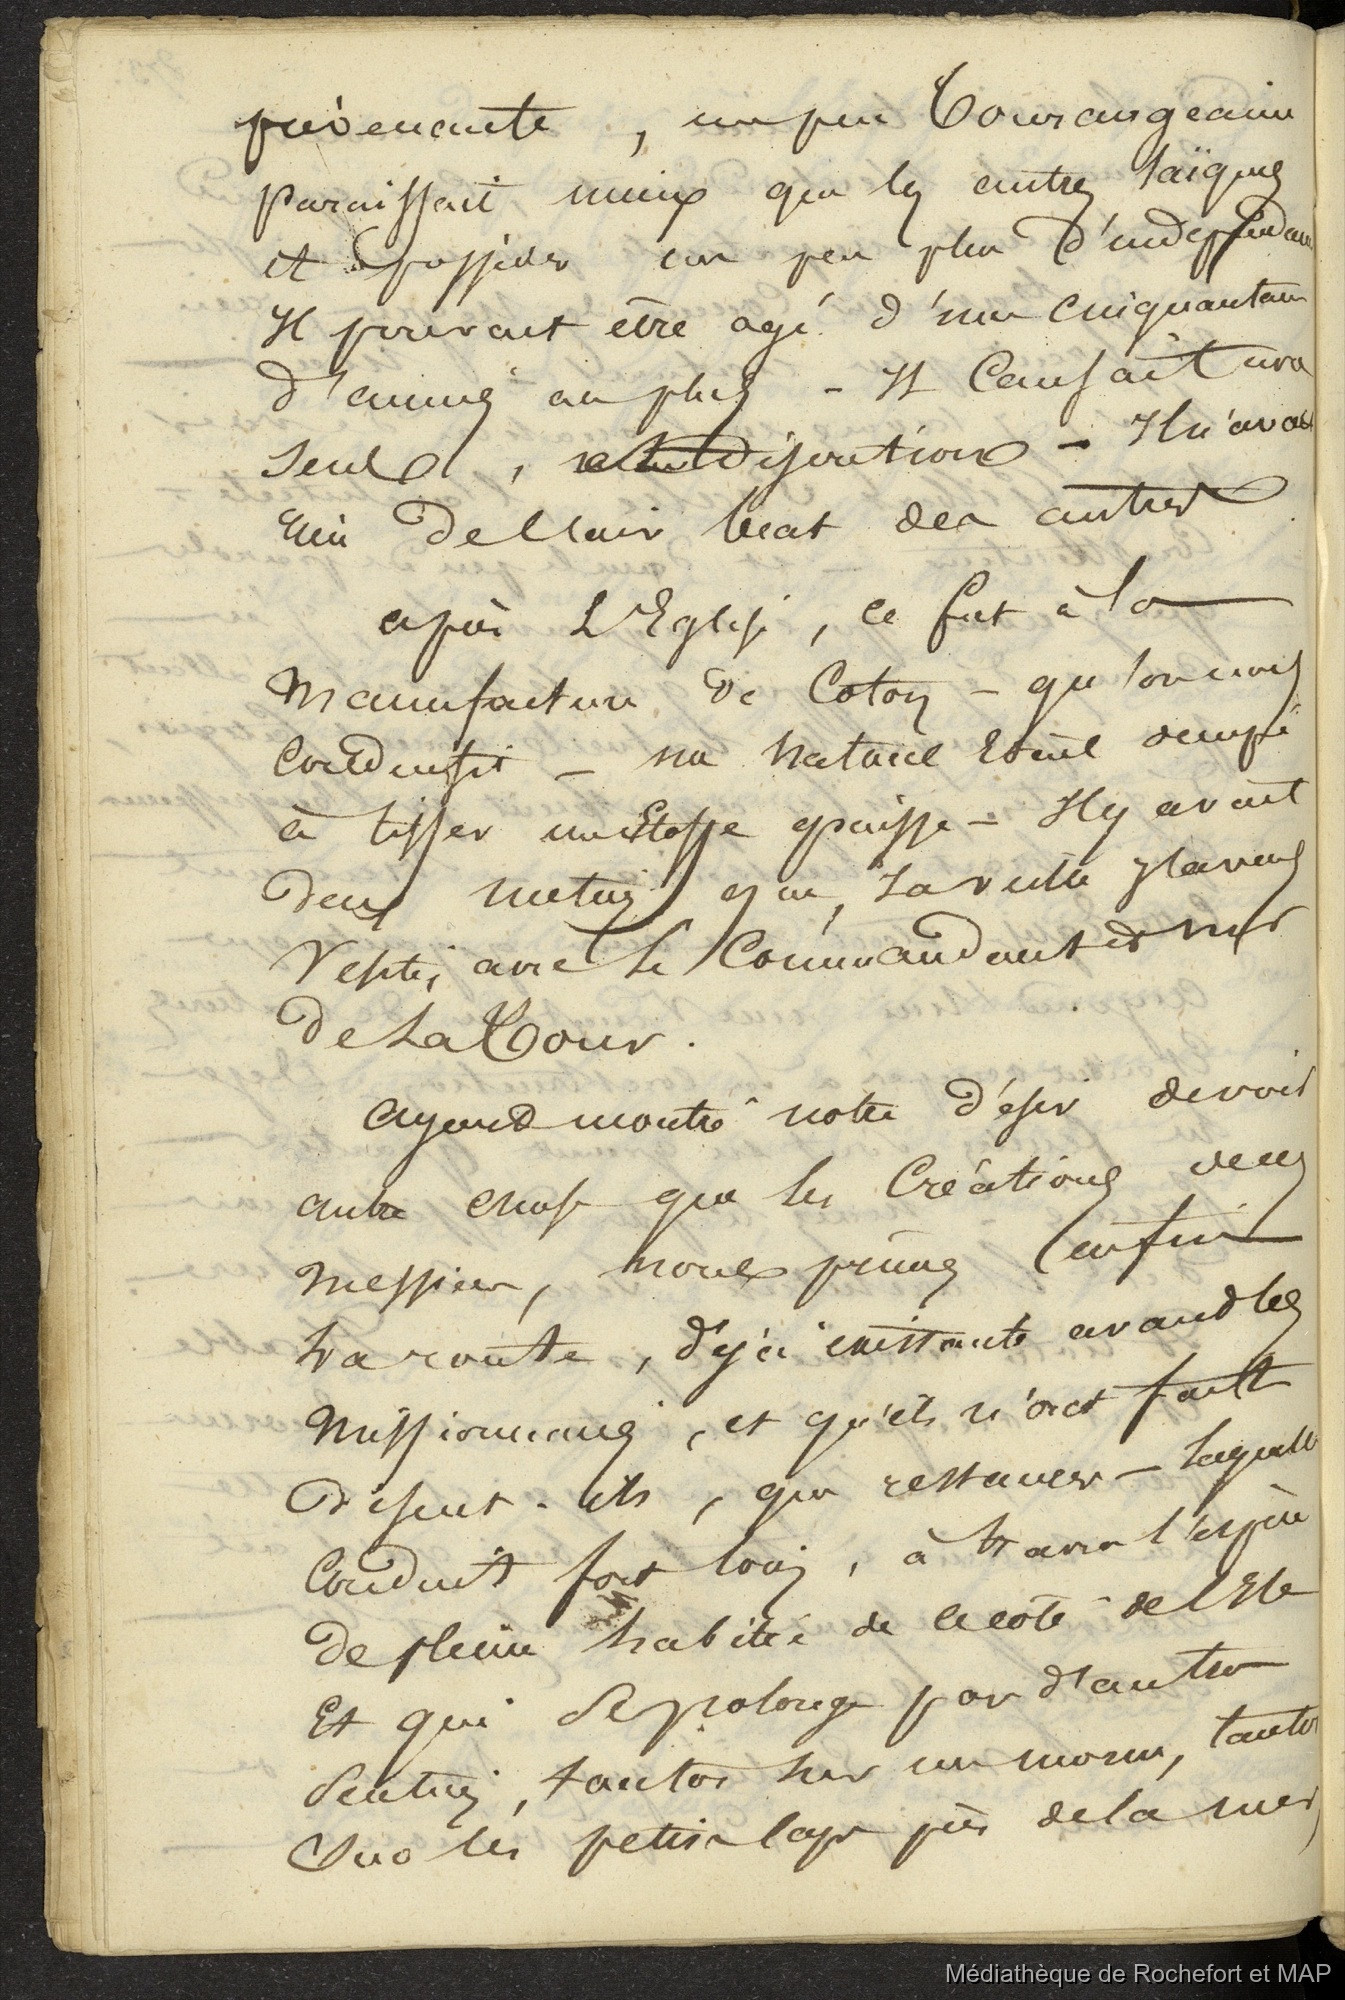 prévenante, un peu Tourangeaine
paraissait mieux que les autres laïques
et posséder un peu plus d'independance
Il pouvait être agé d'une cinquantaine
d'années au plus - Il causait
seul, discretion - Il n'avait
rien de l'air beat des autres
après L'Eglise, ce fut à la
manufacture de Coton - qu'on nous
conduisit - un naturel était occupé
à tisser une Etoffe epaisse - Il y avait
deux metiers que, la veille j'avais
visités avec le Commandant et Mr
De La Tour.
ayant montré notre désir de voir
autre chose que les Créations de ces
Messieurs, nous primes enfin
La route, déjà existante avant les
Missionnaires, et qu'ils n'ont fait
disent-ils, que restaurer - laquelle
Conduit fort loin, à travers l'espèce
de plaine habitée de ce coté de l'Ile
Et qui se prolonge par d'autres
sentiers, tantot sur un morne, tantot
sur les petites laps près de la mer,
Médiathèque de Rochefort et MAP